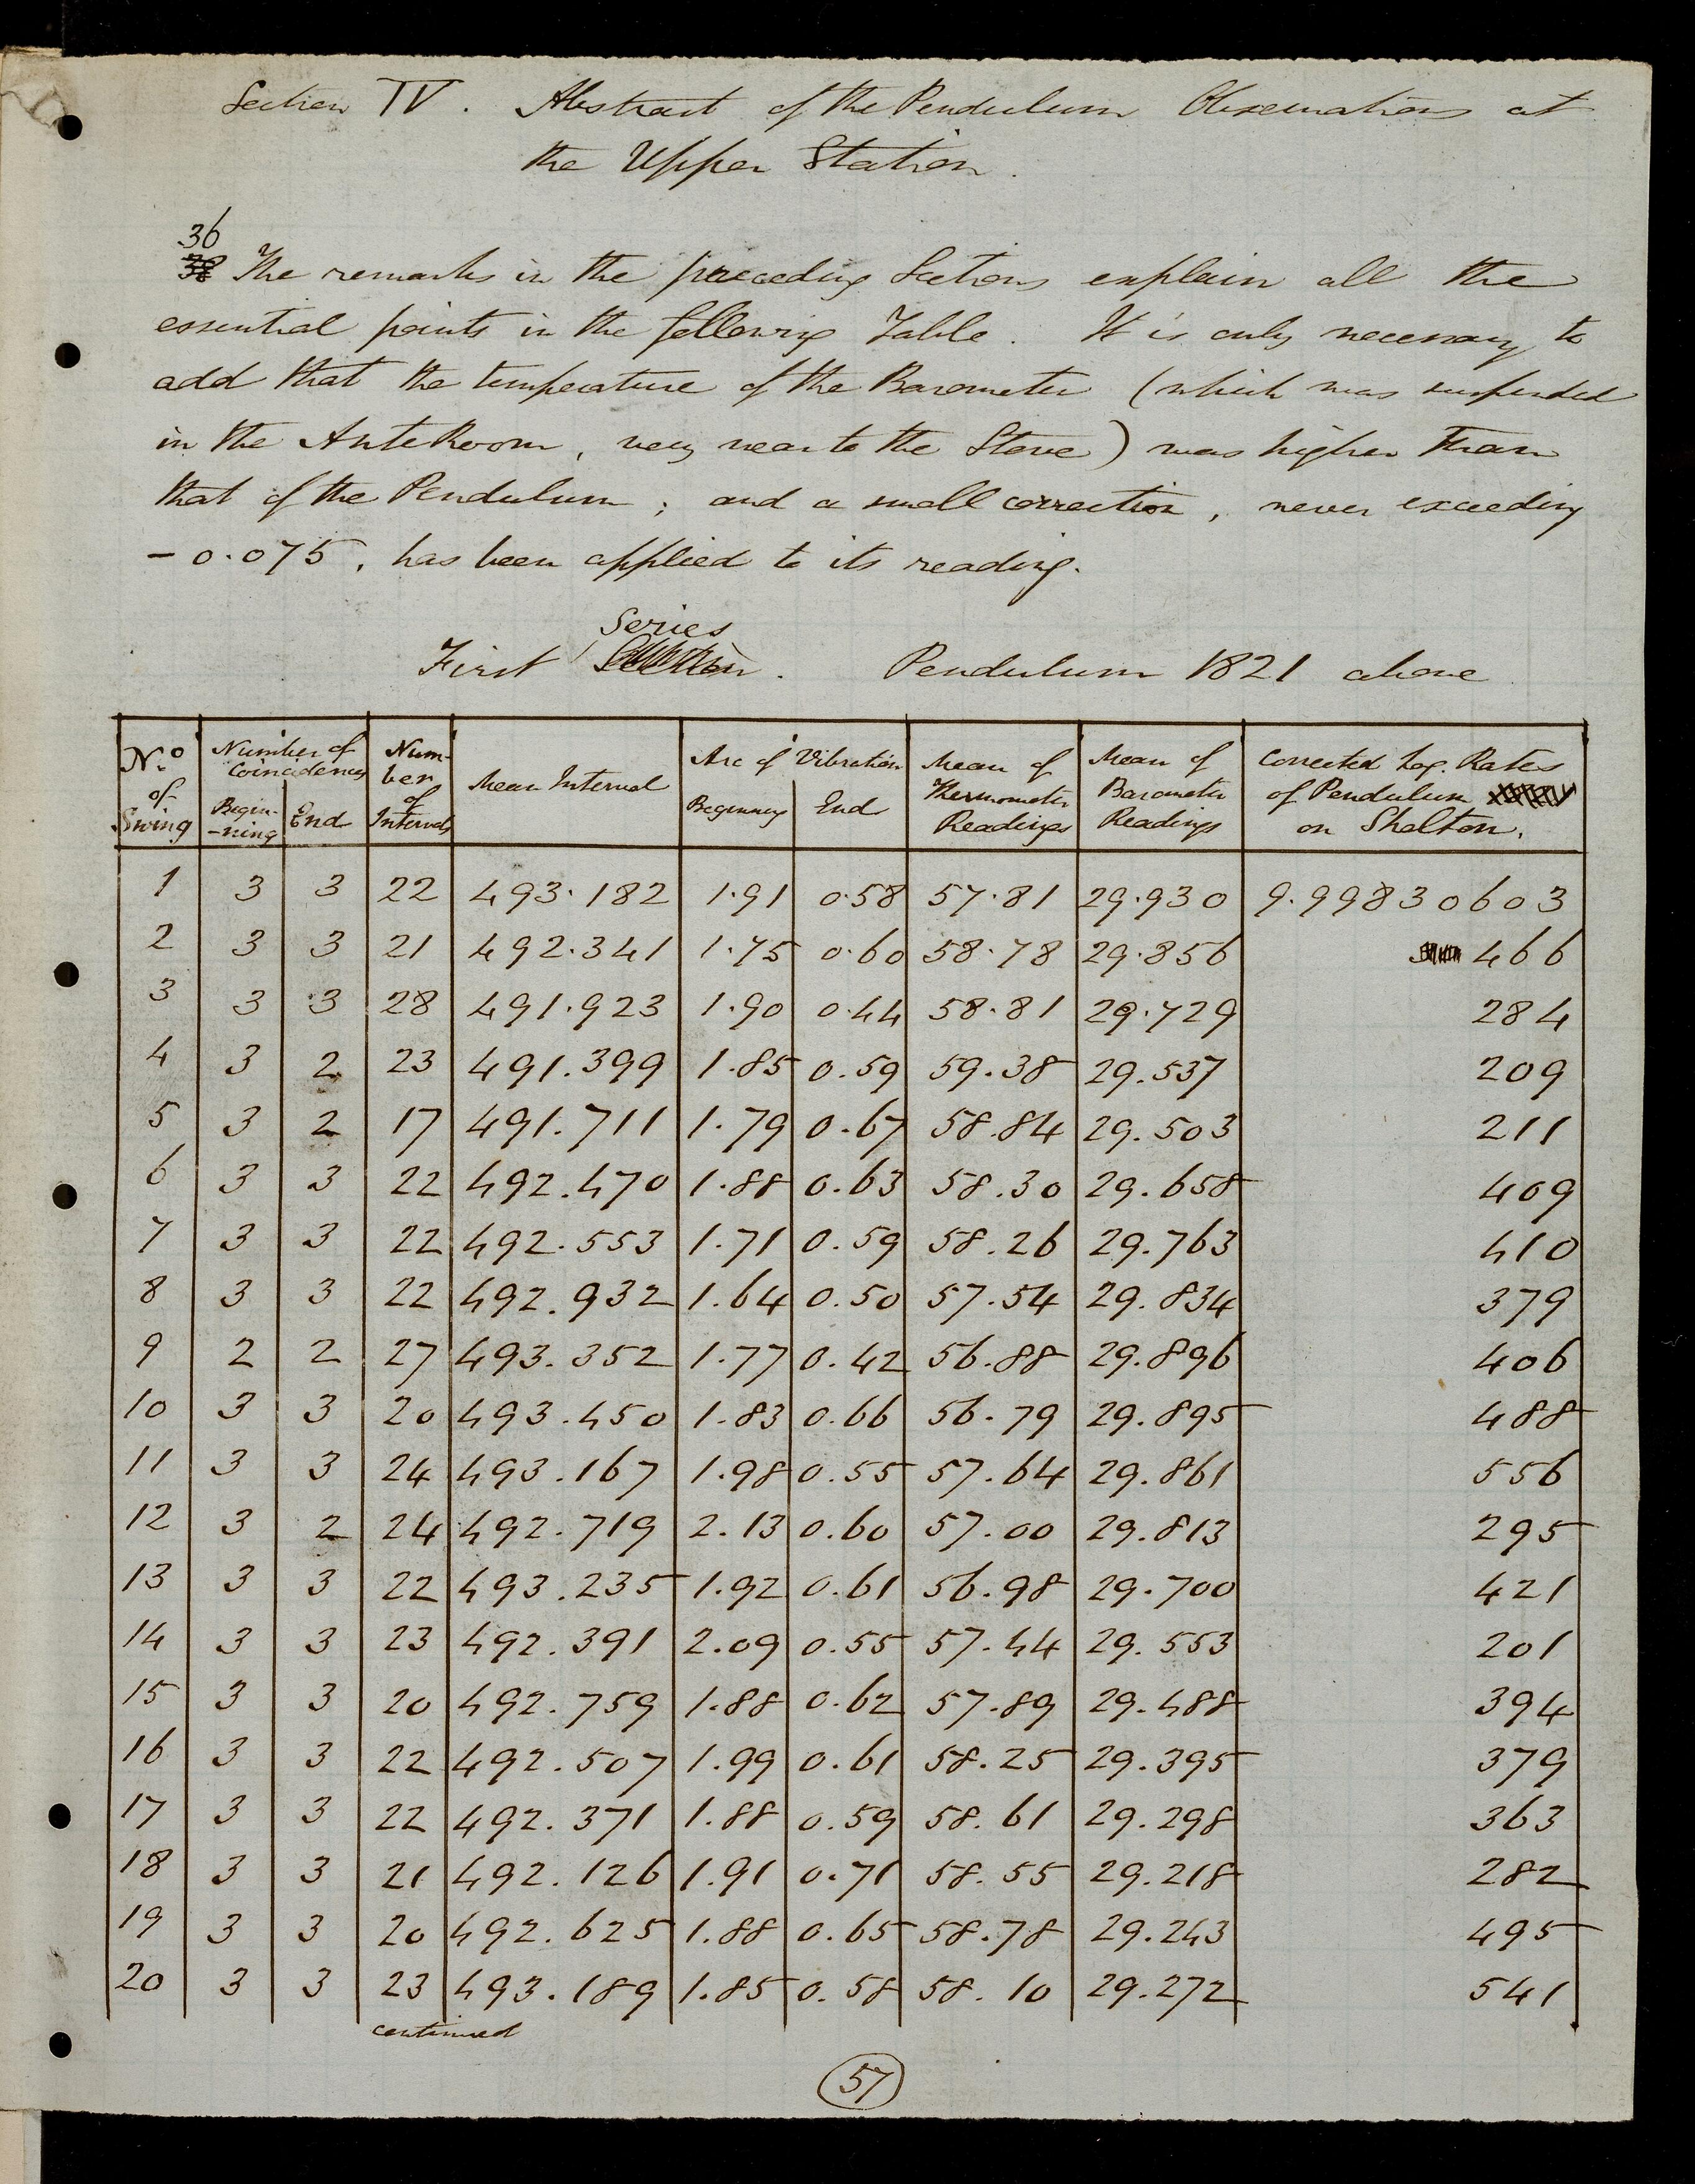 Section IV. Abstract of the Pendulum Observations at
the Upper Station.
36
38 The remarks in the preceding Sections explain all the
essential points in the following Table. It is only necessary to
add that the temperature of the Barometer (which was suspended
in the Ante Room, very near to the Stove) was higher than
that of the Pendulum; and a small correction, never exceeding
- 0.075, has been applied to its reading.
Series
First Section. Pendulum 1821 above
No. of Swing | Number of Coincidences Beginning | End | Number of Intervals | Mean Interval | Arc of Vibration Beginning | End | Mean of Thermometer Readings | Mean of Barometer Readings | Corrected Log. Rates of Pendulum on Shelton.
1 3 3 22 493.182 1.91 0.58 57.81 29.930 9.99830603
2 3 3 21 492.341 1.75 0.60 58.78 29.856 466
3 3 3 28 491.923 1.90 0.44 58.81 29.729 284
4 3 2 23 491.399 1.85 0.59 59.38 29.537 209
5 3 2 17 491.711 1.79 0.67 58.84 29.503 211
6 3 3 22 492.470 1.88 0.63 58.30 29.658 409
7 3 3 22 492.553 1.71 0.59 58.26 29.763 410
8 3 3 22 492.932 1.64 0.50 57.54 29.834 379
9 2 2 27 493.352 1.77 0.42 56.88 29.896 406
10 3 3 20 493.450 1.83 0.66 56.79 29.895 488
11 3 3 24 493.167 1.98 0.55 57.64 29.861 556
12 3 2 24 492.719 2.13 0.60 57.00 29.813 295
13 3 3 22 493.235 1.92 0.61 56.98 29.700 421
14 3 3 23 492.391 2.09 0.55 57.44 29.553 201
15 3 3 20 492.759 1.88 0.62 57.89 29.488 394
16 3 3 22 492.507 1.99 0.61 58.25 29.395 379
17 3 3 22 492.371 1.88 0.59 58.61 29.298 363
18 3 3 21 492.126 1.91 0.71 58.55 29.218 282
19 3 3 20 492.625 1.88 0.65 58.78 29.243 495
20 3 3 23 493.189 1.85 0.58 58.10 29.272 541
continued
57